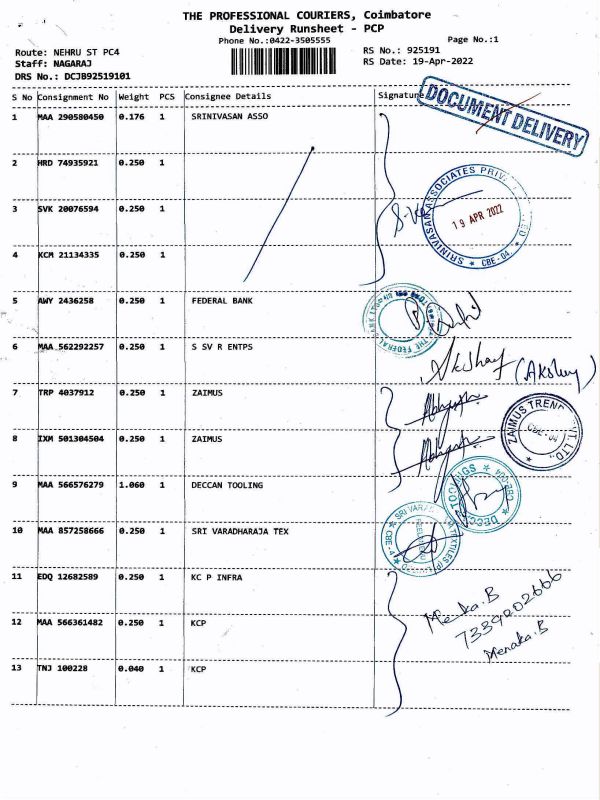 THE PROFESSIONAL COURIERS, Coimbatore
Delivery Runsheet - PCP
Phone No.:0422-3505555
Page No.:1
Route: NEHRU ST PC4
RS No.: 925191
Staff: NAGARAJ
RS Date: 19-Apr-2022
DRS No.: DCJB92519101
S No Consignment No Weight PCS Consignee Details Signature
DOCUMENT DELIVERY
1 MAA 290580450 0.176 1 SRINIVASAN ASSO
2 HRD 74935921 0.250 1
3 SVK 20076594 0.250 1
SRINIVASAN ASSOCIATES
19 APR 2022
CBE-04.
4 KCM 21134335 0.250 1
5 AWY 2436258 0.250 1 FEDERAL BANK
THE FEDERAL BANK
6 MAA 562292257 0.250 1 S SV R ENTPS
Akshay (Akshay)
7 TRP 4037912 0.250 1 ZAIMUS
ZAIMUS TREND
CBE-04
8 IXM 501304504 0.250 1 ZAIMUS
9 MAA 566576279 1.060 1 DECCAN TOOLING
DECCAN TOOLINGS
CBE-004
10 MAA 857258666 0.250 1 SRI VARADHARAJA TEX
SRI VAR
TEXTILES (P)
CBE-4
11 EDQ 12682589 0.250 1 KC P INFRA
Menka.B
7339202666
Menaka.B
12 MAA 566361482 0.250 1 KCP
13 TNJ 100228 0.040 1 KCP